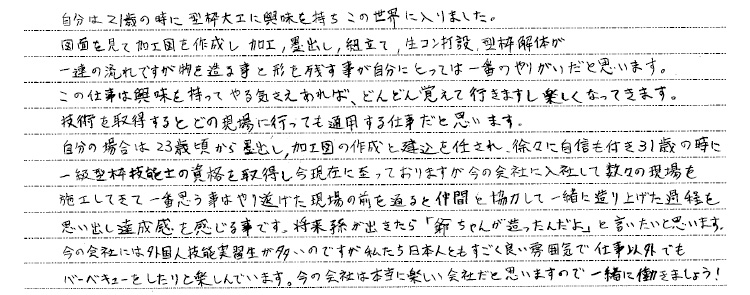 自分は21歳の時に型枠大工に興味を持ちこの世界に入りました。
図面を見て加工図を作成し加工,墨出し,組立て,生コン打設,型枠解体が
一連の流れですが物を造る事と形を残す事が自分にとっては一番のやりがいだと思います。
この仕事は興味を持ってやる気さえあれば、どんどん覚えて行きますし楽しくなってきます。
技術を取得するとどの現場に行っても通用する仕事だと思います。
自分の場合は23歳頃から墨出し,加工図の作成と建込を任され、徐々に自信も付き31歳の時に
一級型枠技能士の資格を取得し今現在に至っておりますが今の会社に入社して数々の現場を
施工してきて一番思う事はやり遂げた現場の前を通ると仲間と協力して一緒に造り上げた過程を
思い出し達成感を感じる事です。将来孫が出きたら「爺ちゃんが造ったんだよ」と言いたいと思います。
今の会社には外国人技能実習生が多いのですが私たち日本人ともすごく良い雰囲気で仕事以外でも
バーベキューをしたりと楽しんでいます。今の会社は本当に楽しい会社だと思いますので一緒に働きましょう!